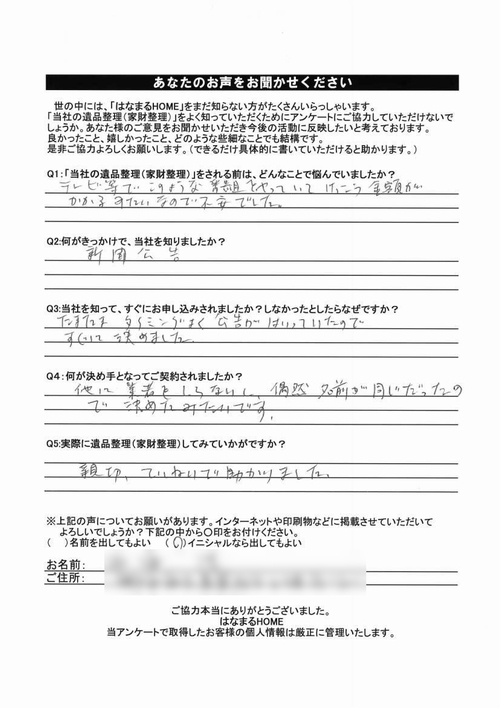 あなたのお声をお聞かせください
世の中には、「はなまるHOME」をまだ知らない方がたくさんいらっしゃいます。
「当社の遺品整理(家財整理)」をよく知っていただくためにアンケートにご協力していただけないで
しょうか。あなた様のご意見をお聞かせいただき今後の活動に反映したいと考えております。
良かったこと、嬉しかったこと、どのような些細なことでも結構です。
是非ご協力よろしくお願いします。(できるだけ具体的に書いていただけると助かります。)
Q1:「当社の遺品整理(家財整理)」をされる前は、どんなことで悩んでいましたか?
テレビ等でこのような番組をやっていてけっこう金額が
かかるみたいなので不安でした。
Q2:何がきっかけで、当社を知りましたか?
新聞公告
Q3:当社を知って、すぐにお申し込みされましたか?しなかったとしたらなぜですか?
たまたまタイミングよく公告がはいっていたので
すぐに決めました。
Q4:何が決め手となってご契約されましたか?
他に業者もしらないし、偶然名前が同じだったの
で決めたみたいです。
Q5:実際に遺品整理(家財整理)してみていかがですか?
親切、ていねいで助かりました。
※上記の声についてお願いがあります。インターネットや印刷物などに掲載させていただいて
よろしいでしょうか?下記の中から〇印をお付けください。
( )名前を出してもよい (〇)イニシャルなら出してもよい
お名前:
ご住所:
ご協力本当にありがとうございました。
はなまるHOME
当アンケートで取得したお客様の個人情報は厳正に管理いたします。